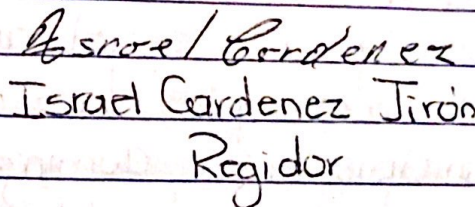 Israel Cardenez
Israel Cardenez Jirón
Regidor